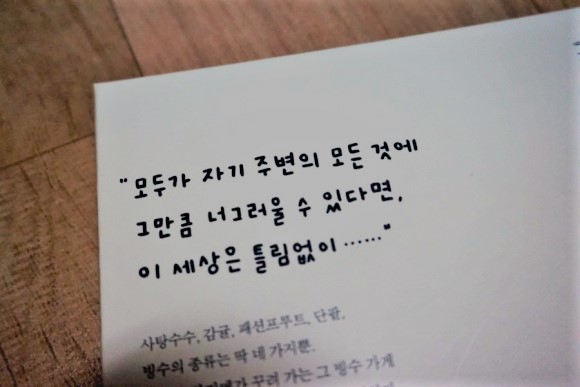 "모두가 자기 주변의 모든 것에
그만큼 너그러울 수 있다면,
이 세상은 틀림없이 ……"
사탕수수, 감귤, 패션프루트, 단팥.
빙수의 종류는 딱 네 가지뿐.
꾸려 가는 그 빙수 가게